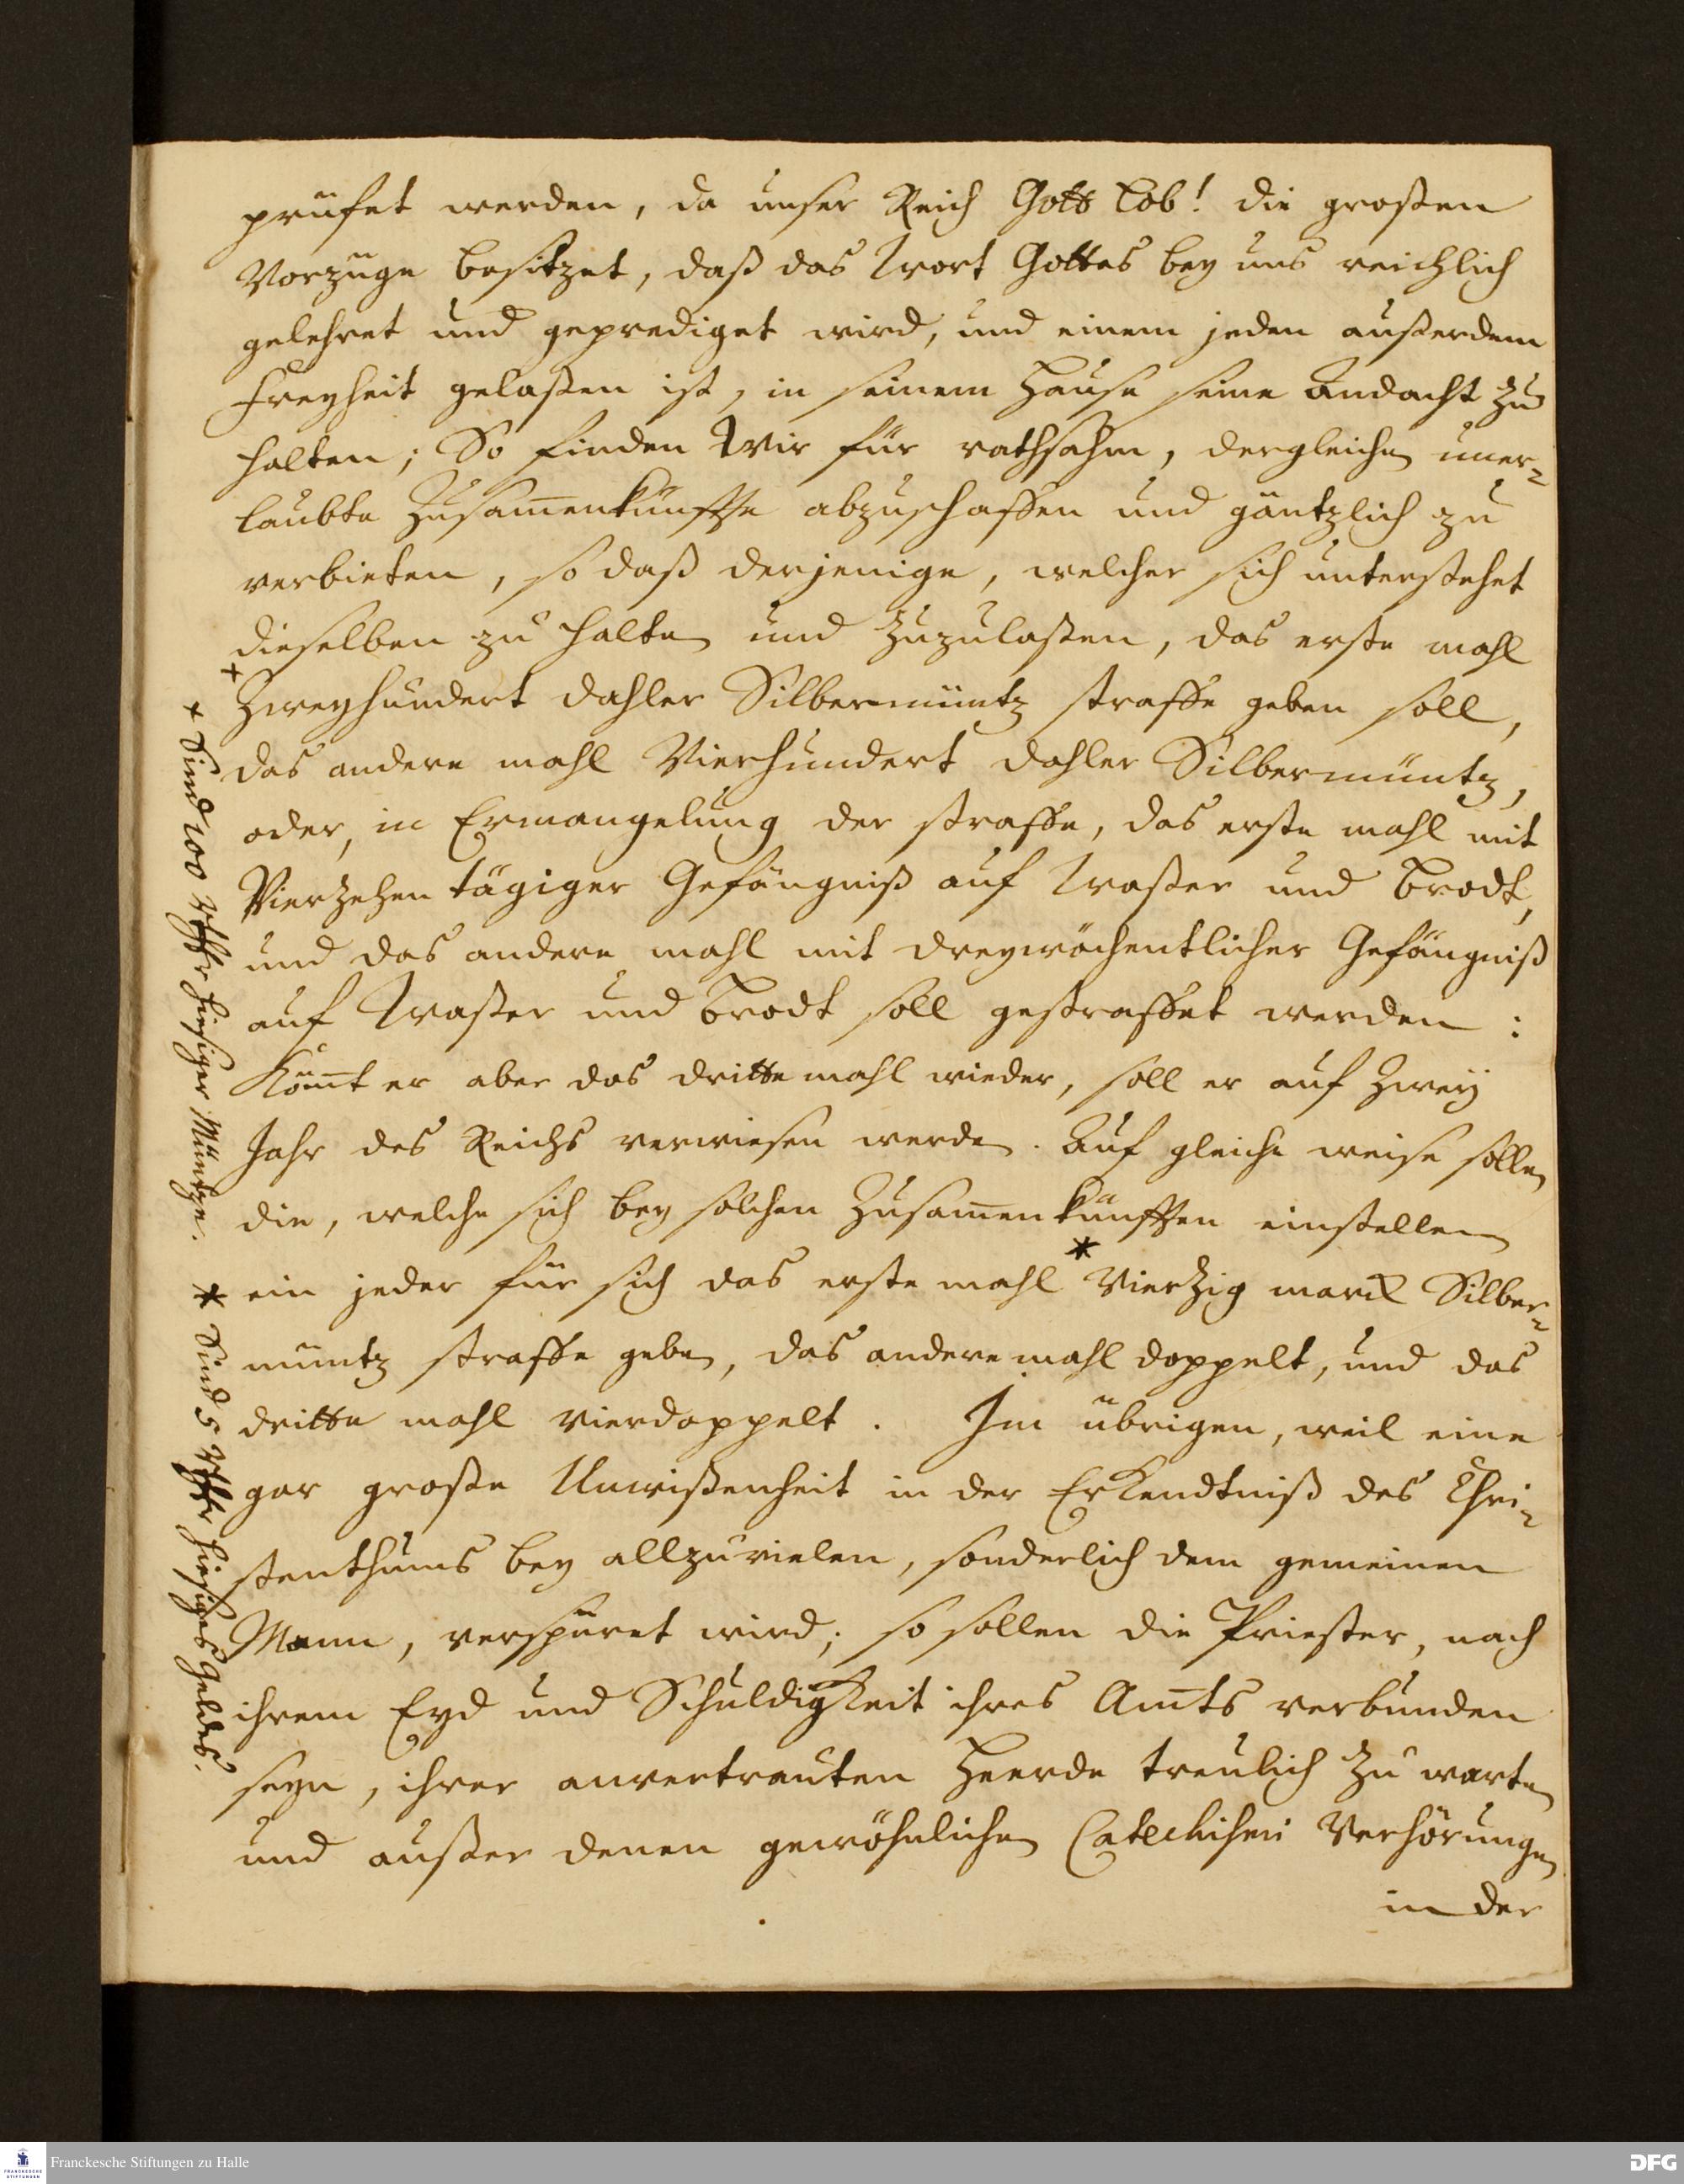 prüfet werden, da unser Reich Gott Lob! die großen
Vorzüge besitzet, daß das Wort Gottes bey uns reichlich
gelehret und geprediget wird, und einem jeden außerdem
Freyheit gelaßen ist, in seinem Hause seine Andacht zu
halten; So finden Wir für rathsahm, dergleichen uner=
laubte Zusam̄enkünffte abzuschaffen und gäntzlich zu
verbieten, so daß derjenige, welcher sich unterstehet
dieselben zu halten und zuzulaßen, das erste mahl
+ Zweyhundert dahler Silbermüntz straffe geben soll,
das andere mahl Vierhundert dahler Silbermüntz,
oder, in Ermangelung der straffe, das erste mahl mit
Vierzehen tägiger Gefängniß auf Waßer und Brodt,
und das andere mahl mit dreywöchentlicher Gefängniß
auf Waßer und Brodt soll gestraffet werden:
Köm̄t er aber das dritte mahl wieder, soll er auf Zwey
Jahr des Reichs verwiesen werden. Auf gleiche weise sollen
die, welche sich bey solchen Zusam̄enkünfften einstellen
ein jeder für sich das erste mahl * Vierzig marck Silber=
müntz straffe geben, das andere mahl doppelt, und das
dritte mahl vierdoppelt. Im übrigen, weil eine
gar große Unwißenheit in der Erkendtniß des Chri=
stenthums bey allzuvielen, sonderlich dem gemeinen
Mann, verspüret wird; so sollen die Priester, nach
ihrem Eyd und Schuldigkeit ihres Am̄ts verbunden
seyn, ihrer anvertrauten Heerde treulich zu warten
und außer denen gewöhnlichen Catechismi Verhörungen
in der
+ Sind 100 rthlr hiesiger Müntze.
* Sind 5 rthlr hiesiges Geldes.
Franckesche Stiftungen zu Halle
FRANCKESCHE
STIFTUNGEN
DFG